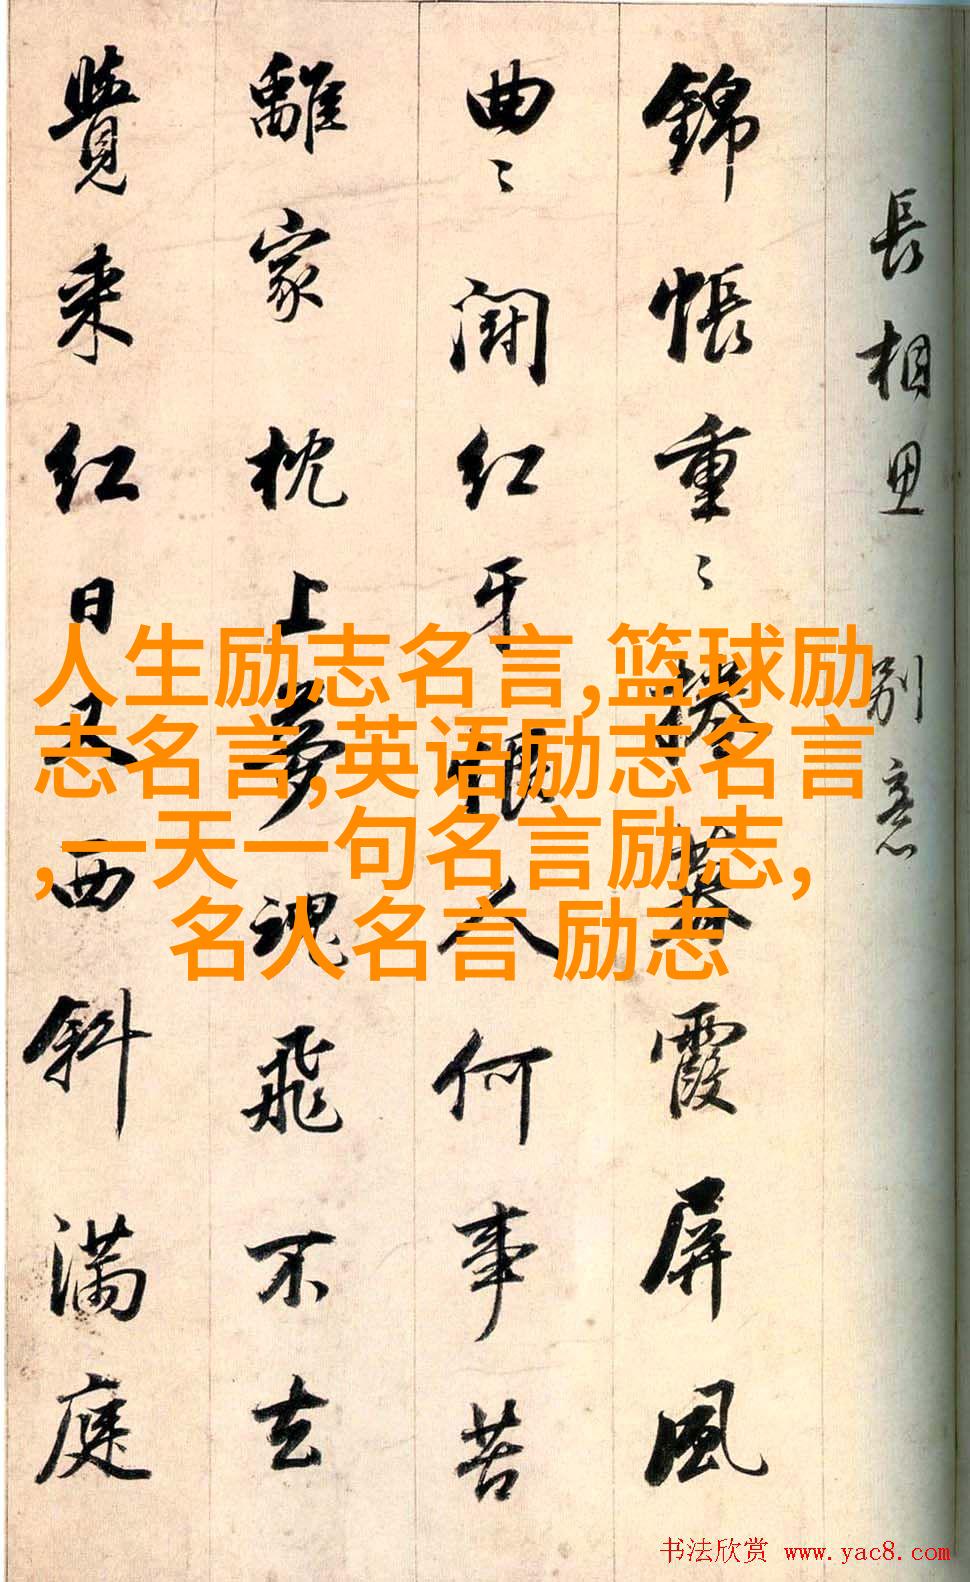 長相思 別意
錦帳重〻捲暮霞屏風
曲〻鬪紅牙恨人何事苦
離家枕上夢魂飛不去
覺來紅日又西斜滿庭
人生励志名言,篮球励
志名言,英语励志名言
,一天一句名言励志,
名人名言 励志
书法欣赏 www.yac8.com